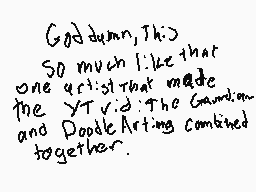 Goddumn, This
so much like that
one artist that made
the YT vid: The Gaurdian
and DoodleArting combined
together.